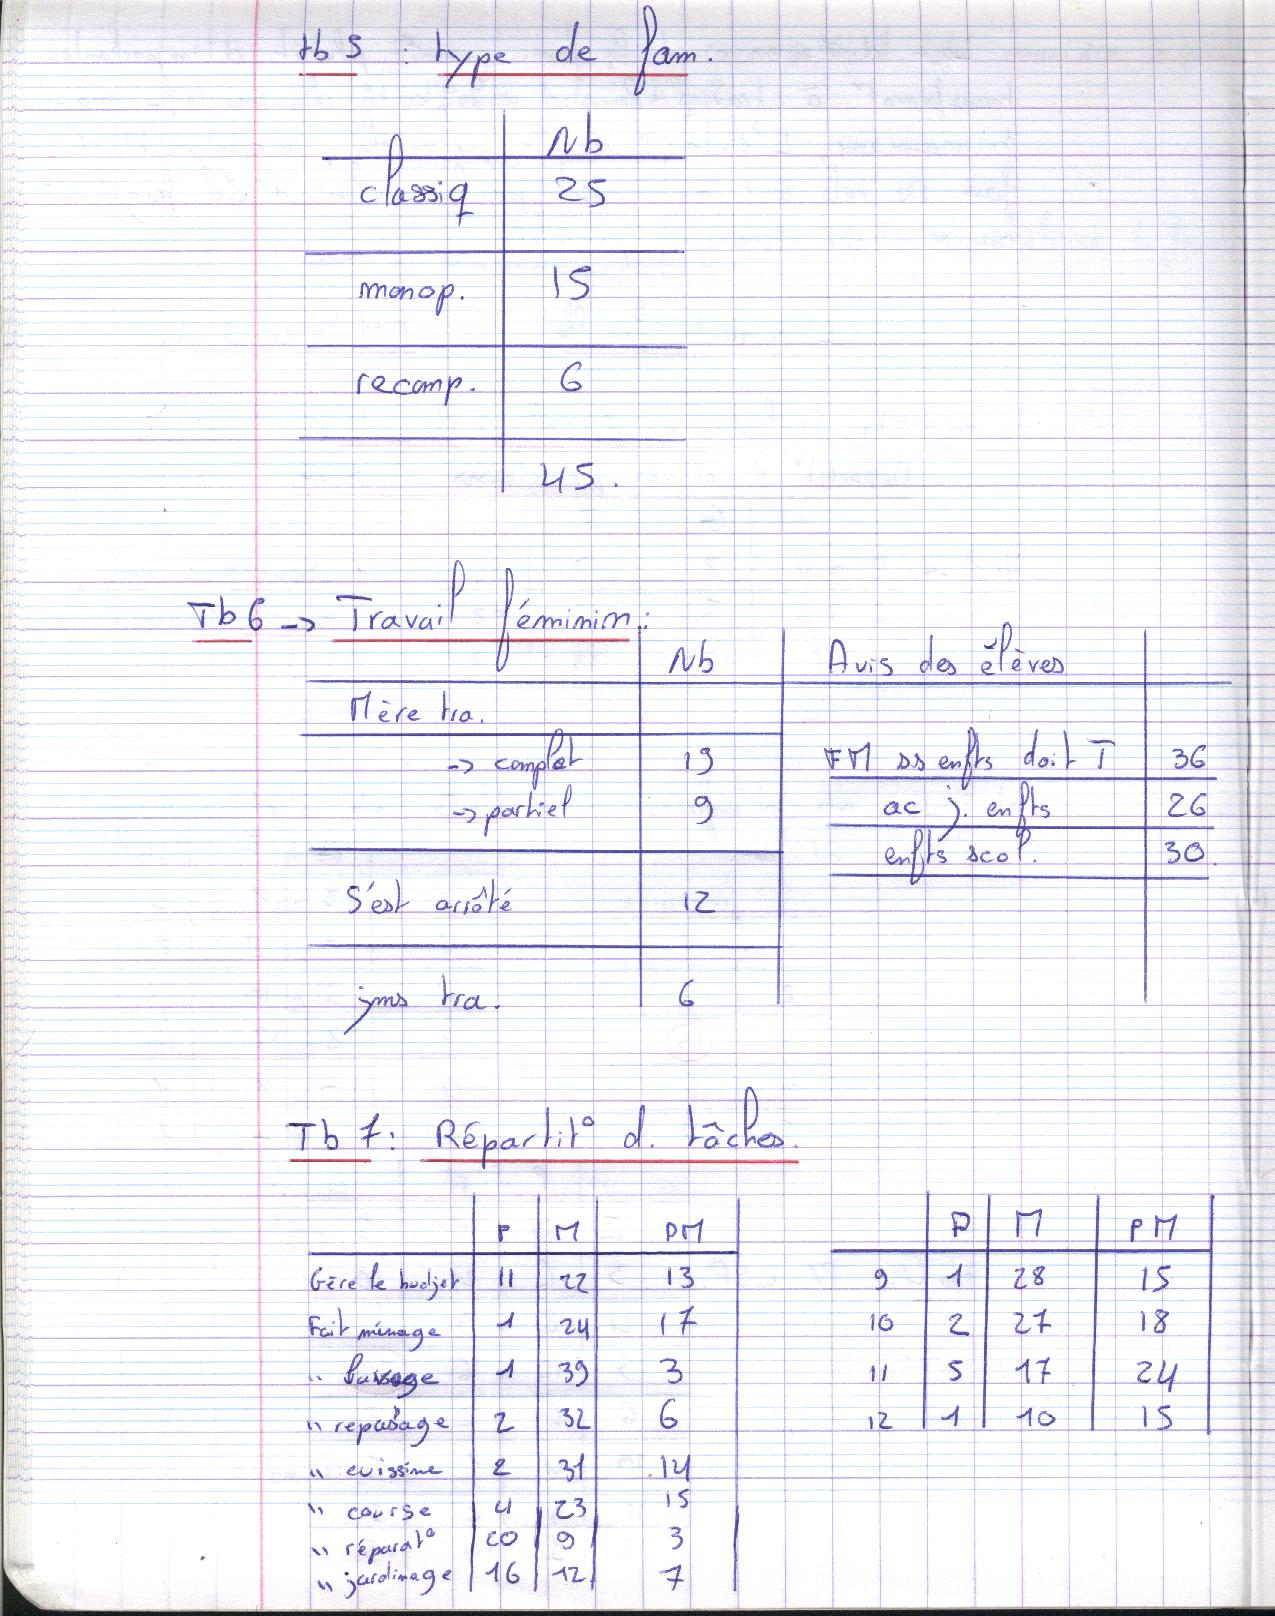 tb 5 : type de fam.
Nb
classiq 25
monop. 15
recomp. 6
45.
Tb 6 -> Travail féminin :
Nb Avis des élèves
Mère tra.
-> complet 19 FM ss enfts doit T 36
-> partiel 9 ac j. enfts 26
enfts scol. 30.
S'est arrêté 12
jms tra. 6
Tb 7 : Répartit° d. tâches.
P M PM P M PM
Gère le budjet 11 22 13 9 1 28 15
Fait ménage 1 24 17 10 2 27 18
" 1 39 3 11 5 17 24
" repassage 2 32 6 12 1 10 15
" cuissine 2 31 14
" course 4 23 15
" réparat° 20 9 3
" jardinage 16 12 7